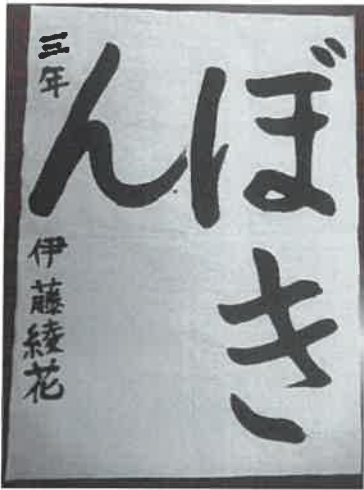 ぼき
ん
三年 伊藤綾花